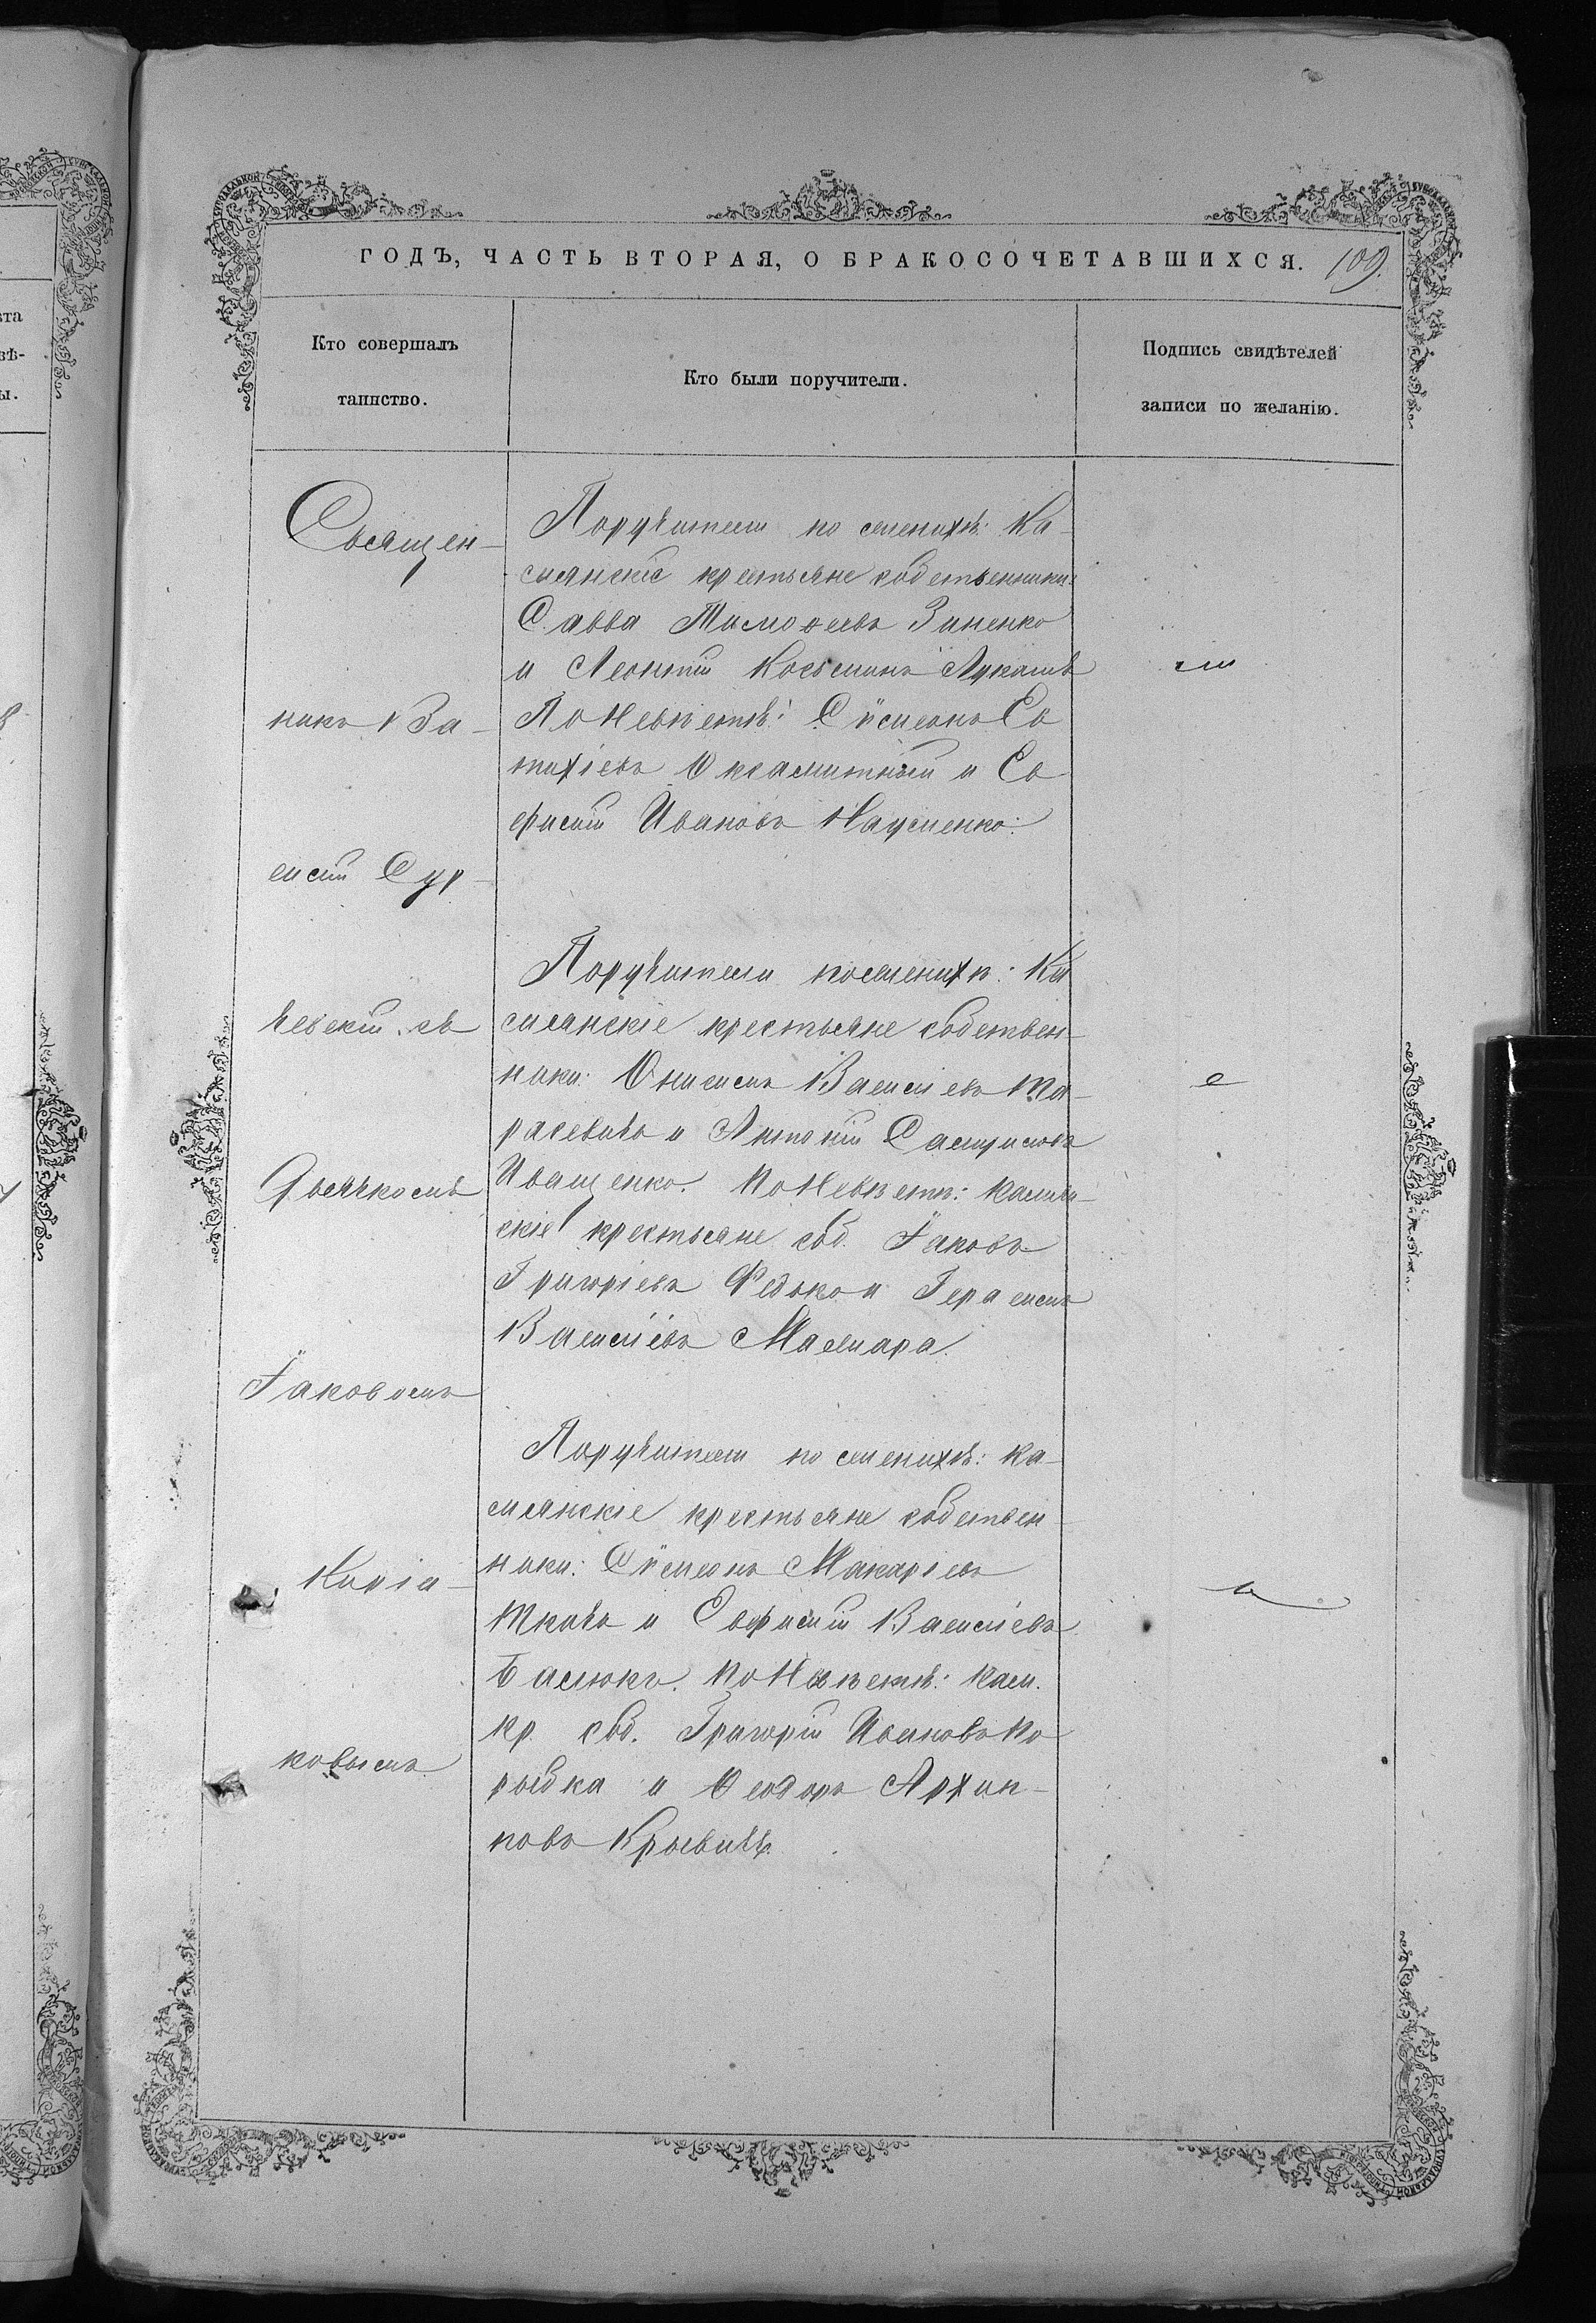 ГОДЪ, ЧАСТЬ ВТОРАЯ, О БРАКОСОЧЕТАВШИХСЯ. 109.
Кто совершалъ
таинство.
Кто были поручители.
Подпись свидѣтелей
записи по желанію.
Священ-
никъ Ва-
силій Сур-
чевскій съ
Дьячкомъ
Іаковомъ
ковымъ
Поручители по женихѣ: Ка-
мянскіе крестьяне собственники:
Савва Тимоѳеевъ Зиненко
и Леонтій Косьминъ Лукашъ
По Невѣстѣ: Сѵмеонъ Ев
тихіевъ Оксамитный и Ев
фимій Ивановъ Науменко.
Поручители по женихѣ: Ка
мянскіе крестьяне собствен-
ники: Онисимъ Василіевъ Та-
расевичъ и Антоній
Иващенко. По Невѣстѣ: камян-
скіе крестьяне соб. Іаковъ
Григоріевъ Федько и Герасимъ
Василіевъ
Поручители по женихѣ: Ка-
мянскіе крестьяне собствен
ники: Сѵмеонъ Макаріевъ
Ткачъ и Евфимій Василіевъ
Басюкъ. По Невѣстѣ: кам.
кр. соб. Григорій Ивановъ Ко
рыбка и Ѳеодоръ Архип-
повъ